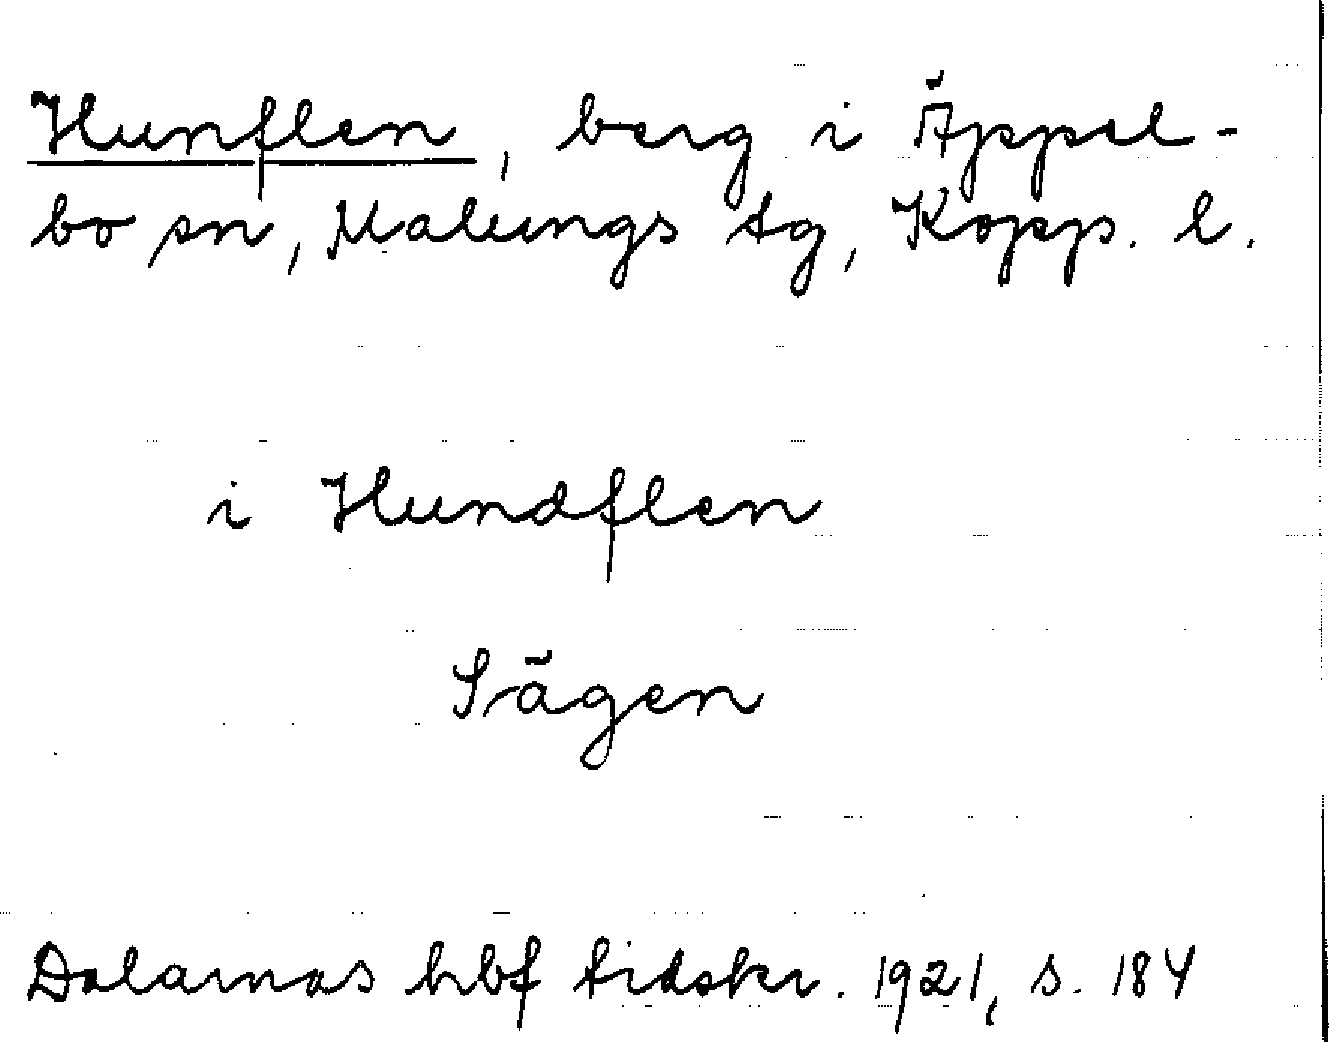 Hunflen, berg i Äppel-
bo sn, Malungs tg, Kopp. l.
i Hundflen
Sägen
Dalarnas hbf tidskr. 1921, s. 184